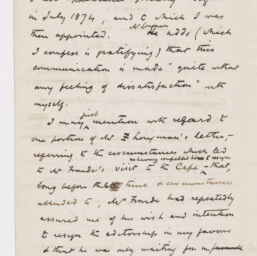 in July 1874, and to which I was
then appointed. Mr Longman he adds (which
I confess is gratifying) that this
communication is made "quite without
any feeling of dissatisfaction" with
myself.
I may just mention with regard to
one portion of Mr Longman's letter,
referring to the circumstances which led
to Mr Froude's visit to the Cape - that,
long before the time & circumstances
alluded to, Mr Froude had repeatedly
assured me of his wish and intention
to resign the editorship in my favour
& that he was only waiting for